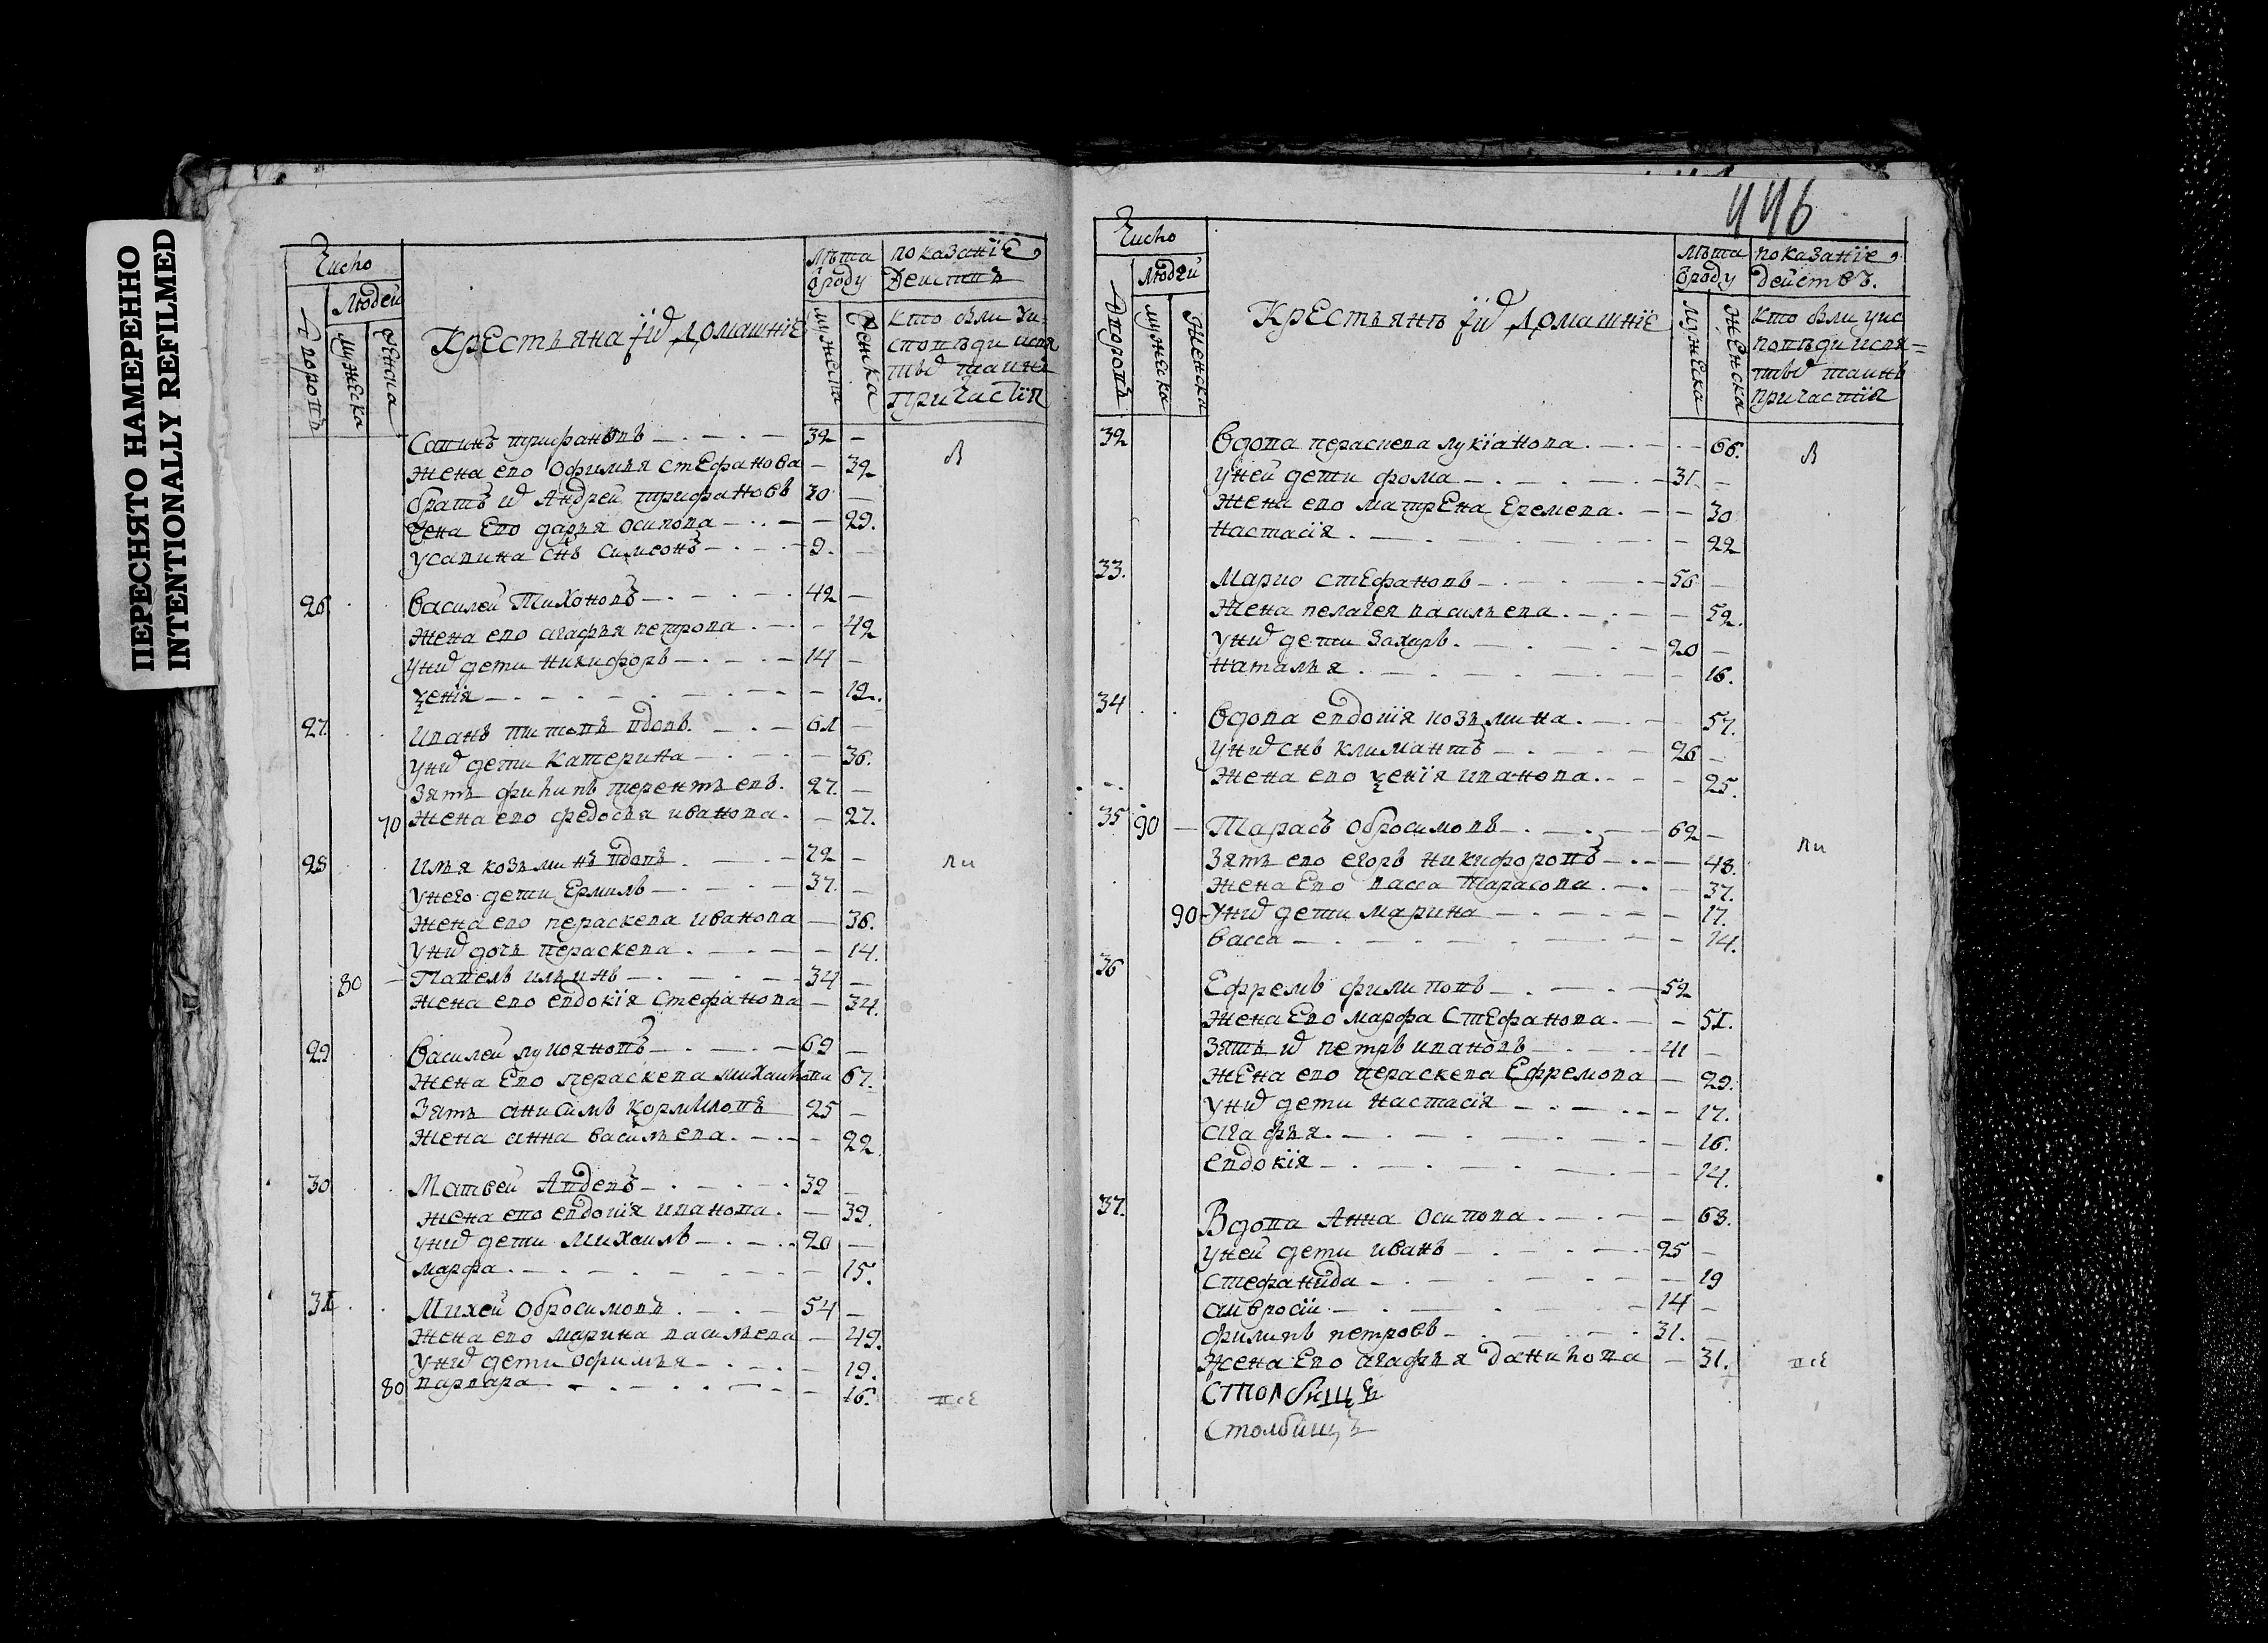 ПЕРЕСНЯТО НАМЕРЕННО
INTENTIONALLY REFILMED
Число
Людей
Дворовъ
мужеска
женска
Крестьяна їихъ домашнїе
Лѣта
ѿроду
мужеска
женска
показанїе,
Действъ
кто были уи
споведи исвя
тыхъ таинъ
Причастїя
Савинъ трифановъ 32
жена ево Офимья стефанова 32
братъ ихъ Андрей трифановъ 30
жена Ево дарья осипова 29.
усавина снъ симеонъ 9.
26 василей Тихоновъ 42
жена ево агафья петрова 42
унихъ дети никифоръ 14
ѯенїя 12.
27. иванъ титовъ вдовъ 61
унихъ дети катерина 36.
зять филипъ терентьевъ. 27.
70 жена ево федосья иванова. 27.
28 илья козьминъ вдовъ 72
унего дети Ермилъ 37.
жена ево пераскева иванова 36.
унихъ дочь пераскева 14.
80 Павелъ ильинъ 34
жена ево евдокїя стефанова 34.
29 василей лукояновъ 69
жена Ево пераскева михаилова 67.
зять анисимъ кормиловъ 25
жена анна васильева. 22.
30 Матвей Авдевъ 39
жена ево евдокїя иванова. 39.
унихъ дети михаилъ 20
марфа. 15.
31. Михей обросимовъ 54
жена ево марина васильева 49.
унихъ дети офимья 19.
80 варвара 16.
В
ли
всѣ
446
Число
Людей
Дворовъ
мужеска
Женска
Крестьянъ їихъ домашнїе
Лѣта
ѿроду
мужеска
женска
показанїе,
действъ.
кто были уис
поведи исвя=
тыхъ таинъ
причастїя
32 вдова пераскева лукїанова. 66.
уней дети фома 31.
жена ево матрена Еремева. 30
настасїя. 22
33. Марко стефановъ 56
жена пелагея васильева. 52.
унихъ дети захаръ. 20
наталья. 16.
34 вдова евдокїя козьмина. 57.
унихъ снъ климантъ 26
жена ево ѯенїя иванова. 25.
35 90 Тарасъ обросимовъ 62
зять ево егоръ никифоровъ 48.
жена Ево васса Тарасова. 37.
90 унихъ дети марина 17.
васса 14.
36 Ефремъ филиповъ 52
жена Ево марфа стефанова. 51.
зять ихъ петръ ивановъ 41
жена ево пераскева Ефремова 29.
унихъ дети настасїя 17.
агафья. 16.
евдокїя 14.
37. Вдова Анна осипова. 68.
уней дети иванъ 25
стефанида 19
амвросїи 14
филипъ петровъ 31.
жена Ево агафья данилова 31.
столбищѣ
столбищѣ
В
ли
всѣ